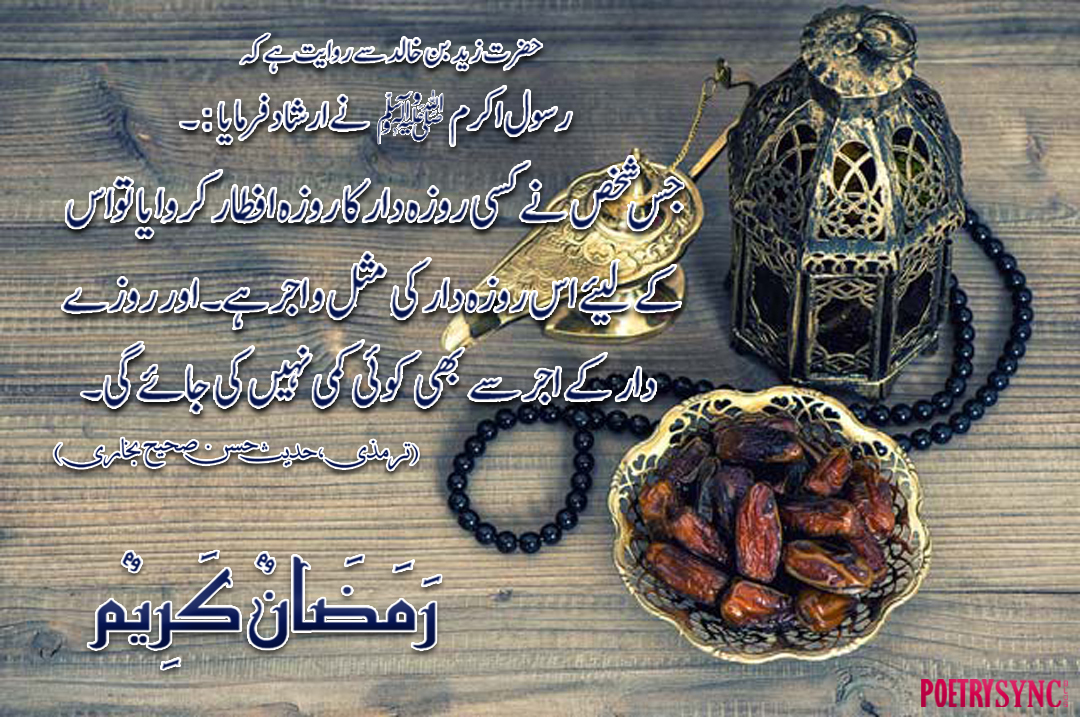 حضرت زید بن خالد سے روایت ہے کہ
رسول اکرم ﷺ نے ارشاد فرمایا:۔
جس شخص نے کسی روزہ دار کا روزہ افطار کروایا تو اس
کے لیئے اس روزہ دار کی مثل و اجر ہے۔ اور روزے
دار کے اجر سے بھی کوئی کمی نہیں کی جائے گی۔
(ترمذی، حدیث حسن صحیح بخاری)
رَمَضَانٌ كَرِيْمٌ
POETRYSYNC